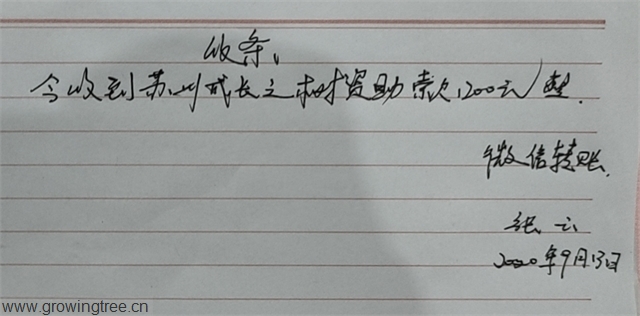 收条:
今收到苏州成长之树资助款1200元整.
微信转账.
张云
2020年9月13日
www.growingtree.cn